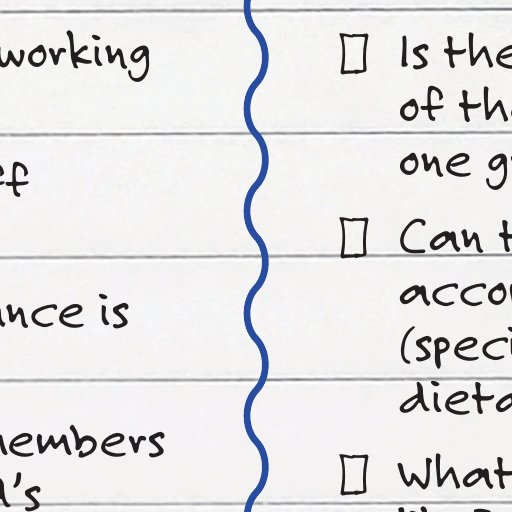 working
ff
ance is
members
d's
Is the
of tha
one g
Can t
accor
(speci
dieta
What